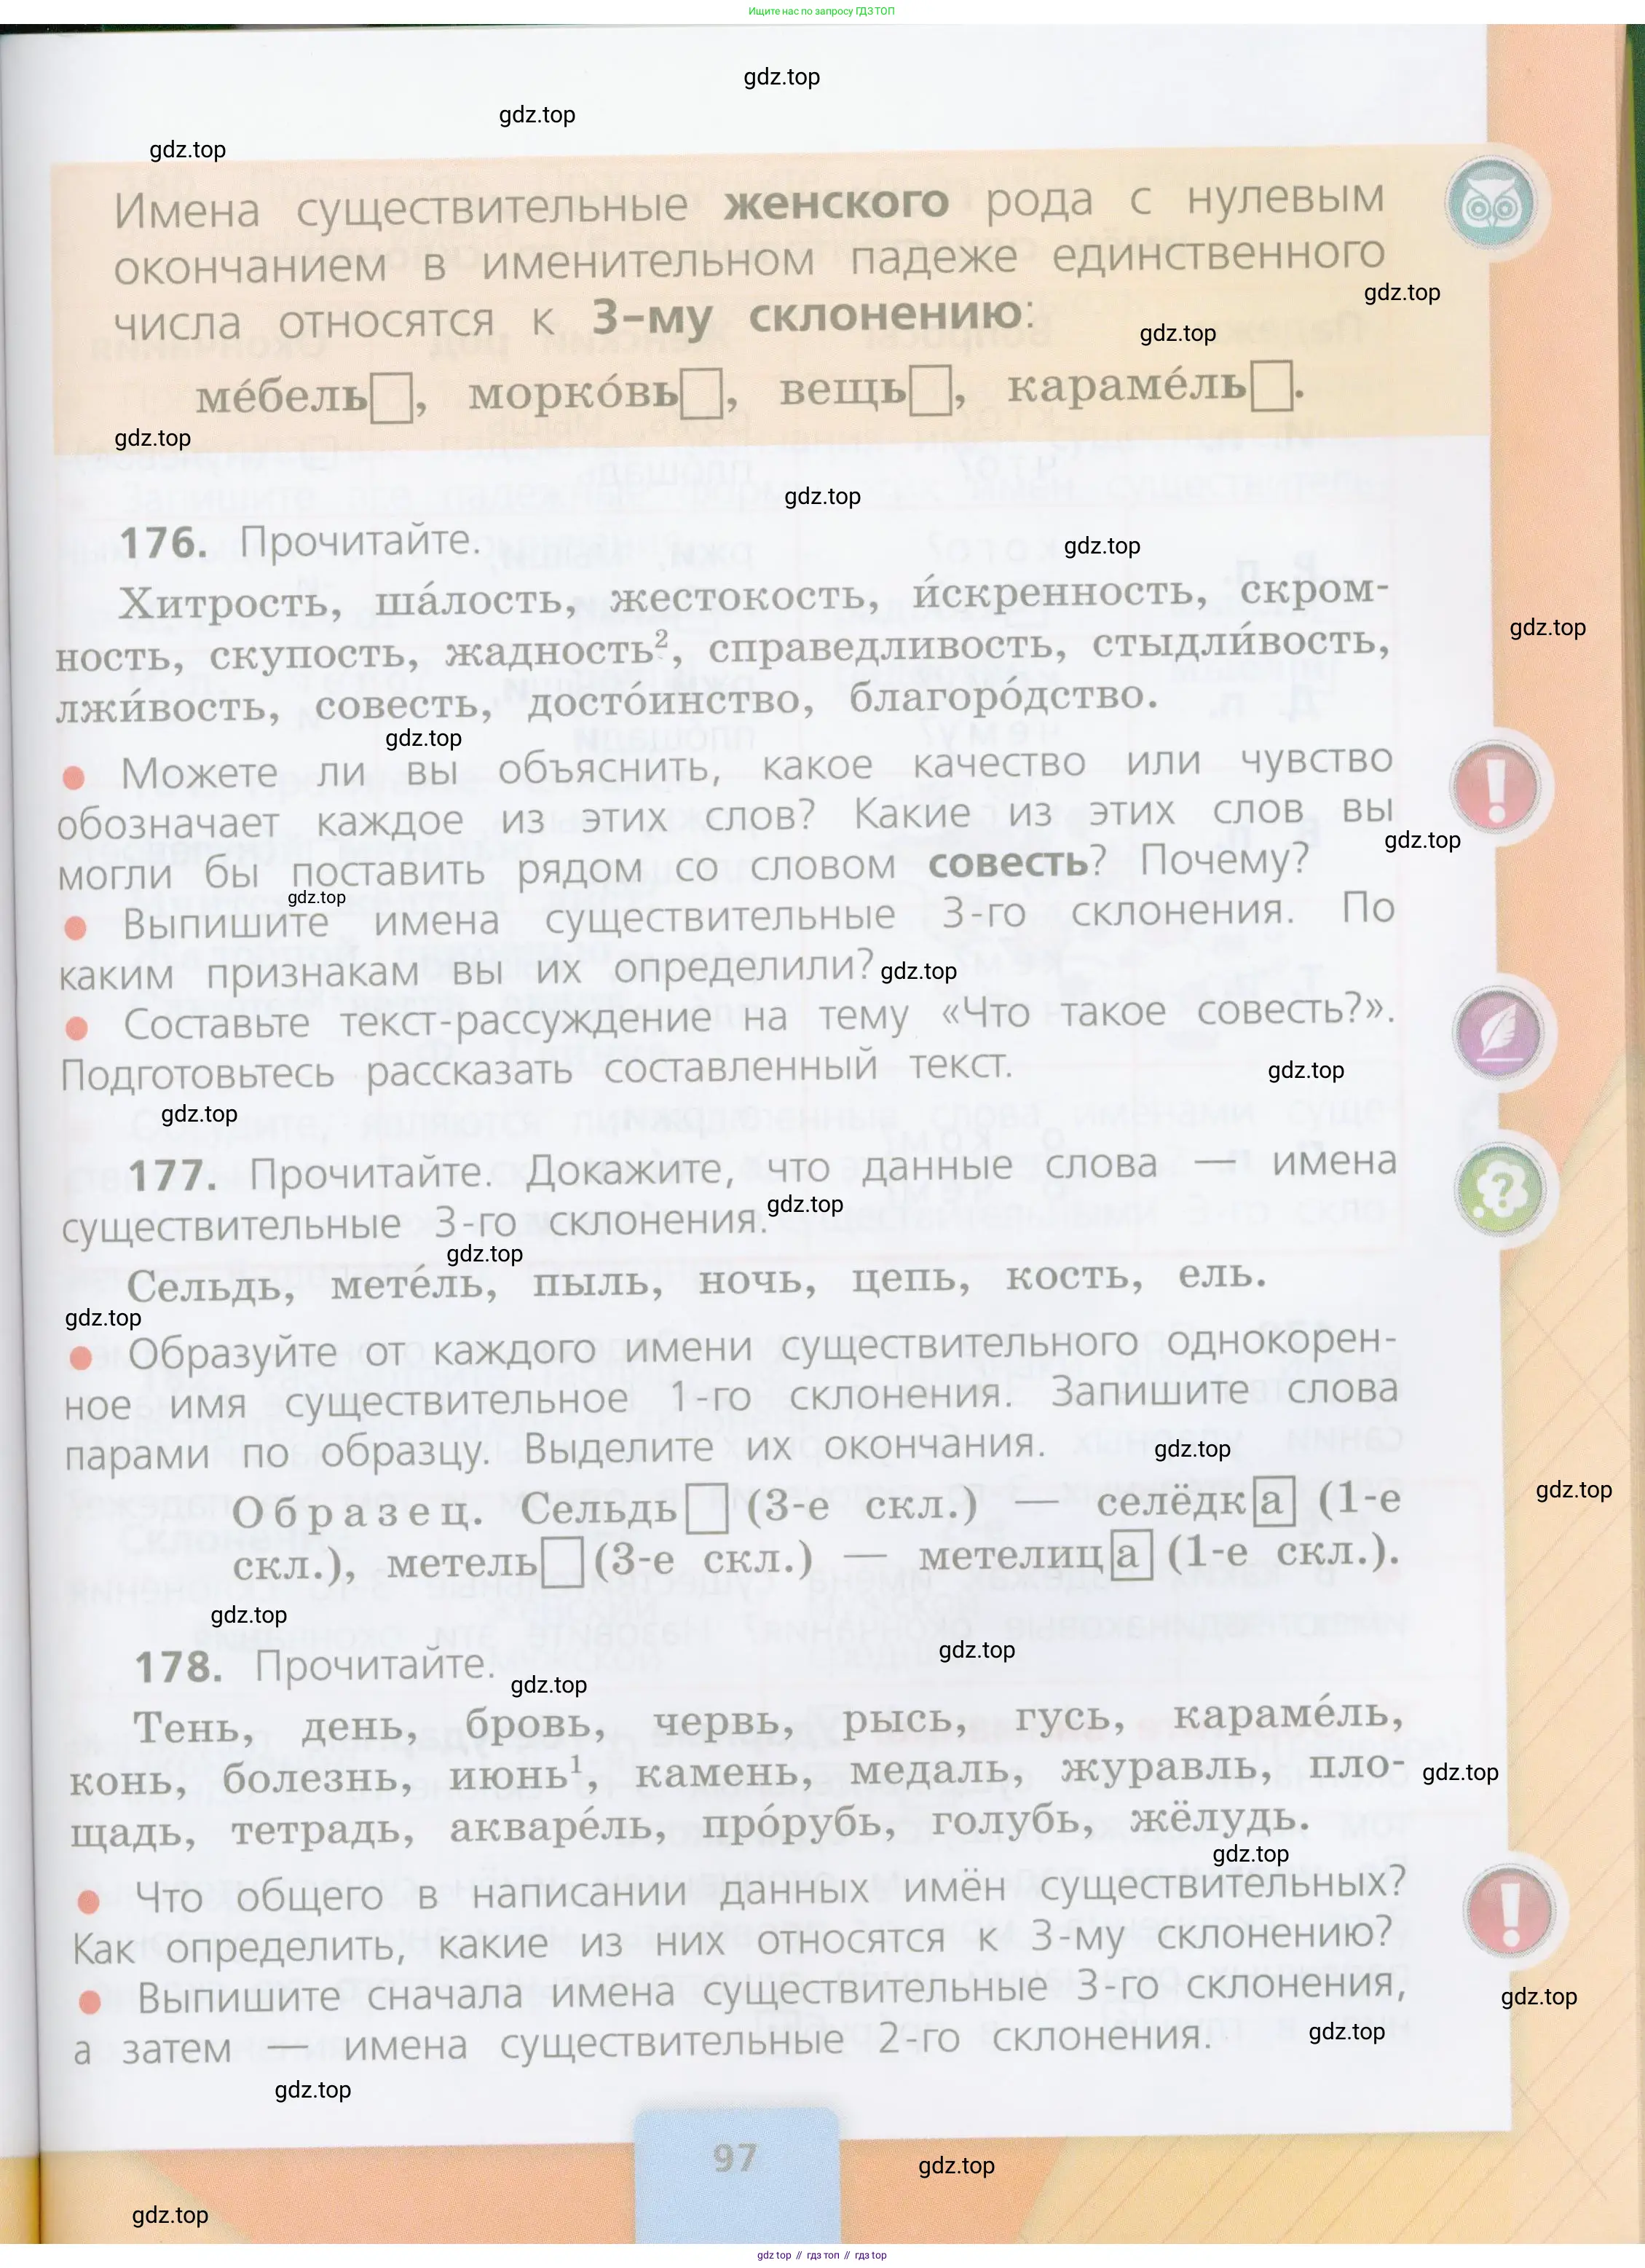 Ищите нас по запросу ГДЗ ТОП
gdz.top
gdz.top
gdz.top
Имена существительные женского рода с нулевым
окончанием в именительном падеже единственного
gdz.top
числа относятся к 3-му склонению:
gdz.top
ме́бель, морко́вь, вещь, караме́ль.
gdz.top
gdz.top
176. Прочитайте.
gdz.top
Хитрость, ша́лость, жестокость, и́скренность, скром-
gdz.top
ность, скупость, жадность², справедливость, стыдли́вость,
лжи́вость, совесть, досто́инство, благоро́дство.
gdz.top
● Можете ли вы объяснить, какое качество или чувство
обозначает каждое из этих слов? Какие из этих слов вы
gdz.top
могли бы поставить рядом со словом совесть? Почему?
gdz.top
● Выпишите имена существительные 3-го склонения. По
каким признакам вы их определили?
gdz.top
● Составьте текст-рассуждение на тему «Что такое совесть?».
Подготовьтесь рассказать составленный текст.
gdz.top
gdz.top
177. Прочитайте. Докажите, что данные слова — имена
существительные 3-го склонения.
gdz.top
gdz.top
Сельдь, мете́ль, пыль, ночь, цепь, кость, ель.
gdz.top
● Образуйте от каждого имени существительного однокорен-
ное имя существительное 1-го склонения. Запишите слова
парами по образцу. Выделите их окончания.
gdz.top
gdz.top
Образец. Сельдь (3-е скл.) — селёдка (1-е
скл.), метель (3-е скл.) — метелица (1-е скл.).
gdz.top
gdz.top
178. Прочитайте.
gdz.top
Тень, день, бровь, червь, рысь, гусь, караме́ль,
конь, болезнь, июнь¹, камень, медаль, журавль, пло-
gdz.top
щадь, тетрадь, акваре́ль, про́рубь, голубь, жёлудь.
gdz.top
● Что общего в написании данных имён существительных?
Как определить, какие из них относятся к 3-му склонению?
● Выпишите сначала имена существительные 3-го склонения,
gdz.top
а затем — имена существительные 2-го склонения.
gdz.top
gdz.top
97
gdz.top
gdz.top
gdz top // гдз топ // гдз top